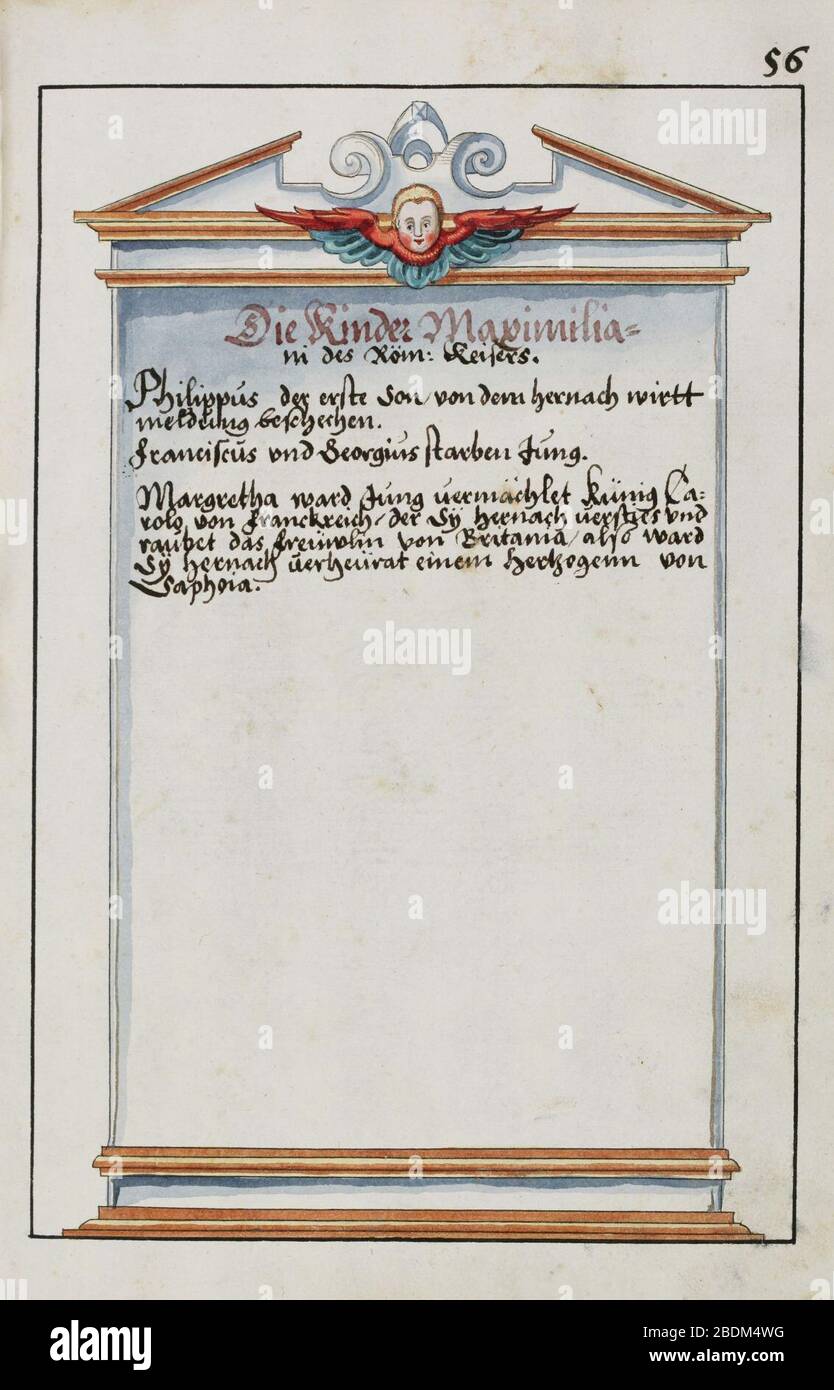 56
Die Kinder Maximilia=
ni des Röm: Keisers.
Philippus der erste Son, von dem hernach wirtt
meldung beschechen.
Franciscus vnd Georgius starben Jung.
Margretha ward Jung vermächlet Künig Ca=
rolo von Franckreich, der Sÿ hernach versties vnd
raubet das Freüwlin von Britania, also ward
Sÿ hernach verheürat einem Hertzogenn von
Saphoia.
alamy
alamy
alamy
alamy
alamy
Image ID: 2BDM4WG
www.alamy.com